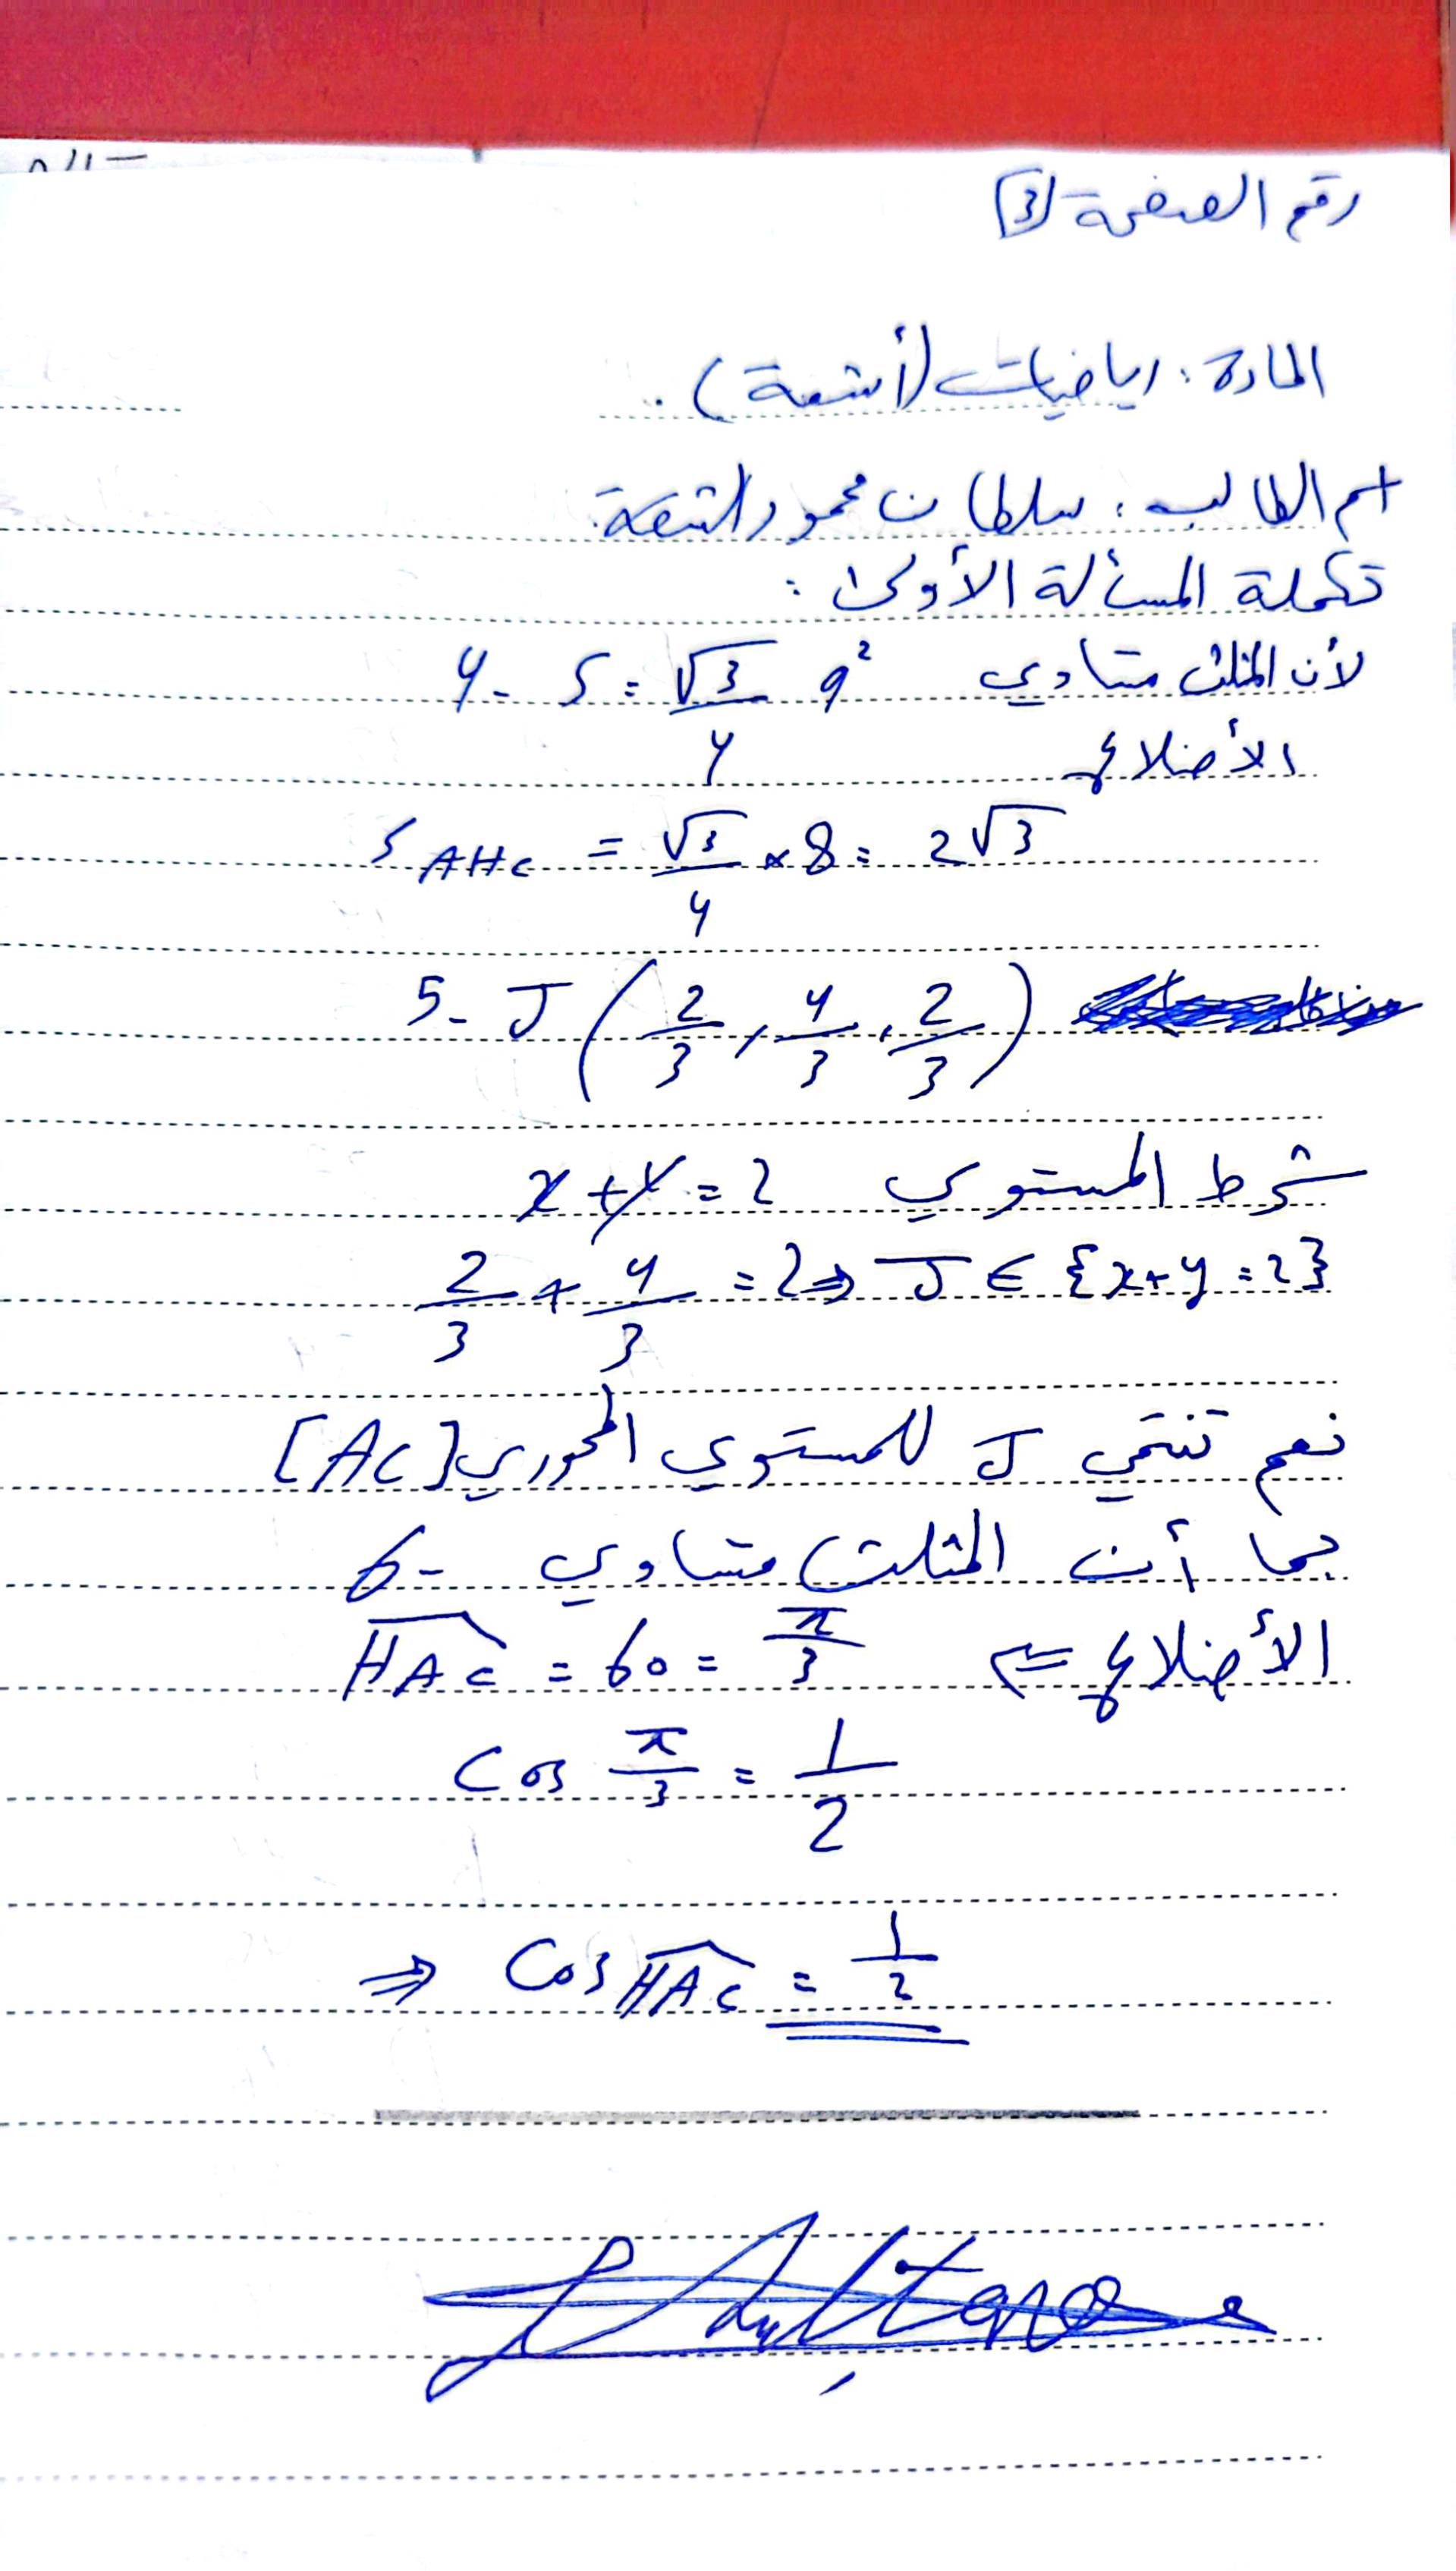 رقم الصفحة 3
المادة: رياضيات (أشعة).
اسم الطالب: سلطان محمود
تكملة المسألة الأولى:
لأن المثلث متساوي 4- S = √3/4 a²
الأضلاع
S AHC = √3/4 × 8 = 2√3
5- J (2/3, 4/3, 2/3)
شرط المستوي x + y = 2
2/3 + 4/3 = 2 ⇒ J ∈ {x+y=2}
نعم تنتمي J للمستوي المحوري [AC]
بما أن المثلث متساوي 6-
الأضلاع ⇐ HAC = 60 = π/3
Cos π/3 = 1/2
⇒ Cos HAC = 1/2